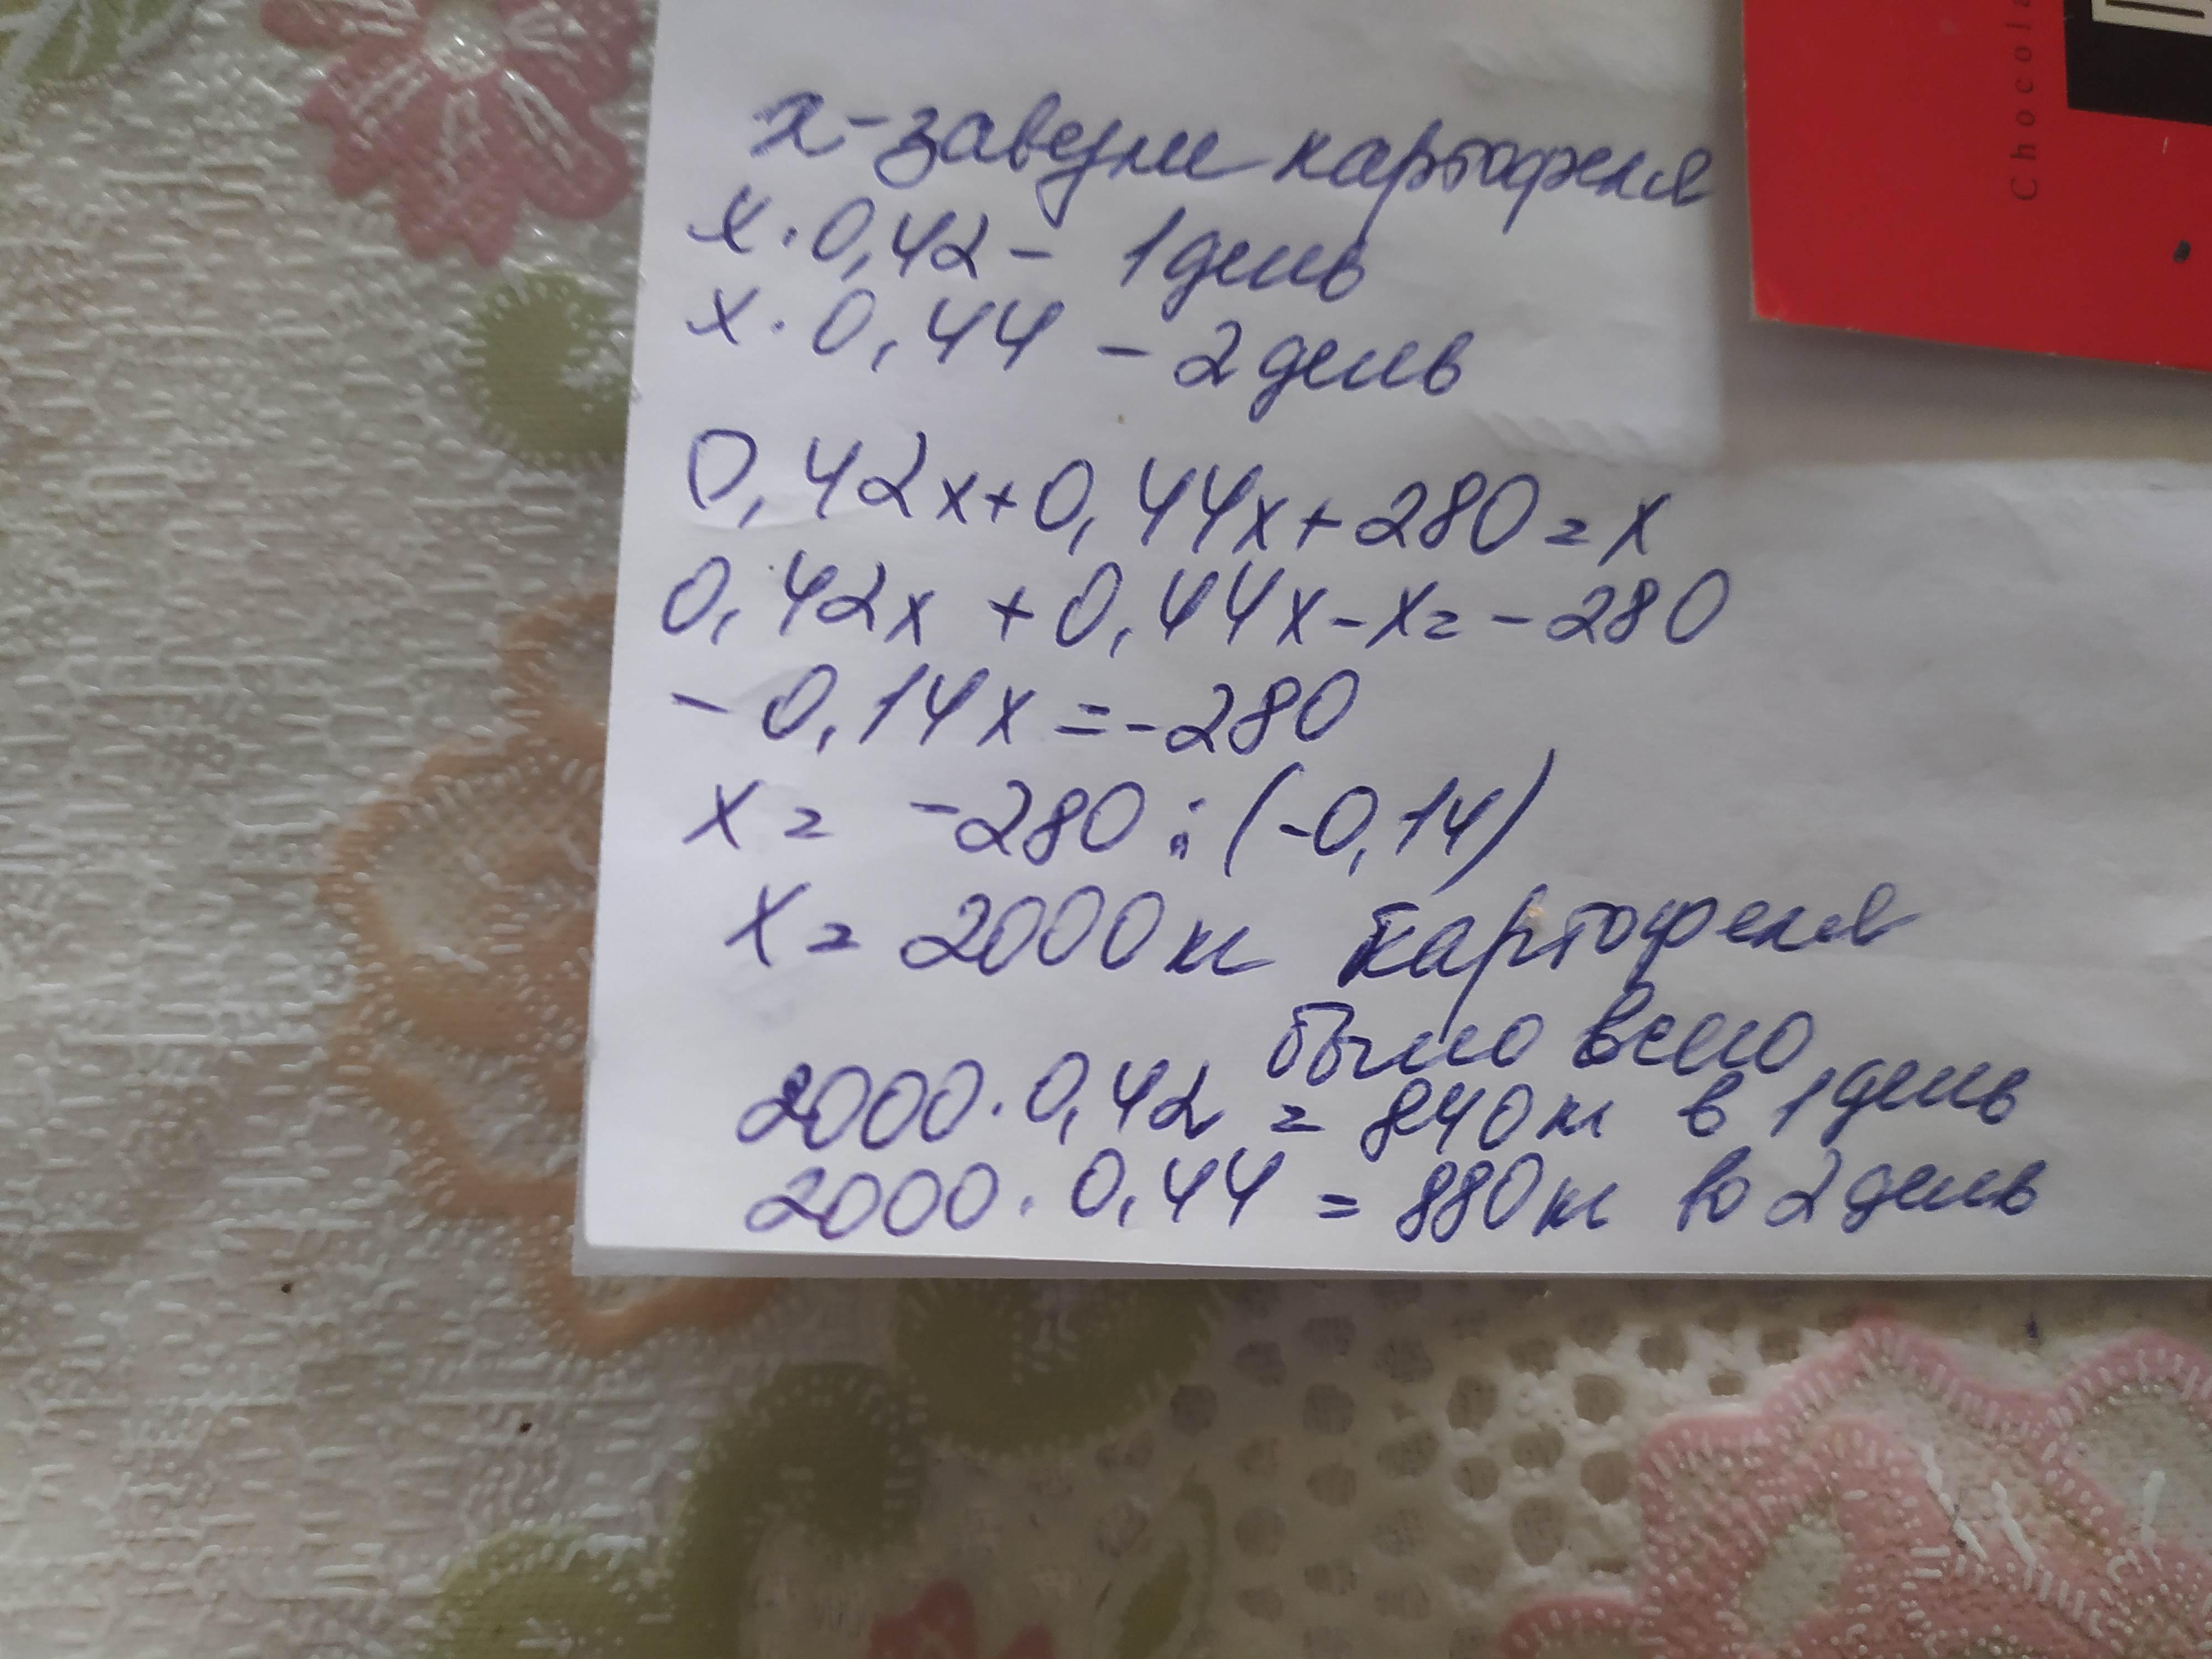 Chocola
х - завезли картофеля
х · 0,42 - 1 день
х · 0,44 - 2 день
0,42х + 0,44х + 280 = х
0,42х + 0,44х - х = - 280
- 0,14х = - 280
х = - 280 : (-0,14)
х = 2000 кг картофеля
было всего
2000 · 0,42 = 840 кг в 1 день
2000 · 0,44 = 880 кг во 2 день